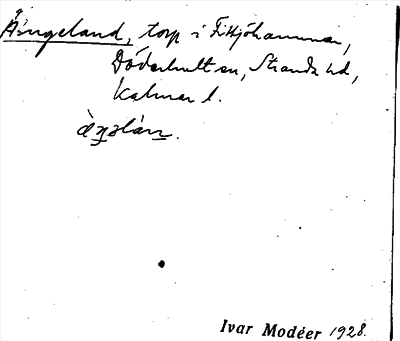 Ängeland, torp i Fittjöhammar,
Döderhult sn, Stranda hd,
Kalmar l.
àŋəlánn.
Ivar Modéer 1928.